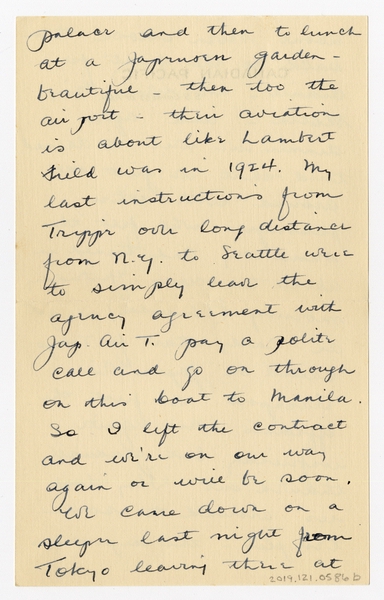 palace and then to lunch
at a Japanese garden -
beautiful - then too the
air port - their aviation
is about like Lambert
Field was in 1924. My
last instructions from
Trippe over long distance
from N.Y. to Seattle were
to simply leave the
agency agreement with
Jap. Air T. pay a polite
call and go on through
on this boat to Manila.
So I left the contract
and we're on our way
again or will be soon.
We came down on a
sleeper last night from
Tokyo leaving there at
2019.121.0586b